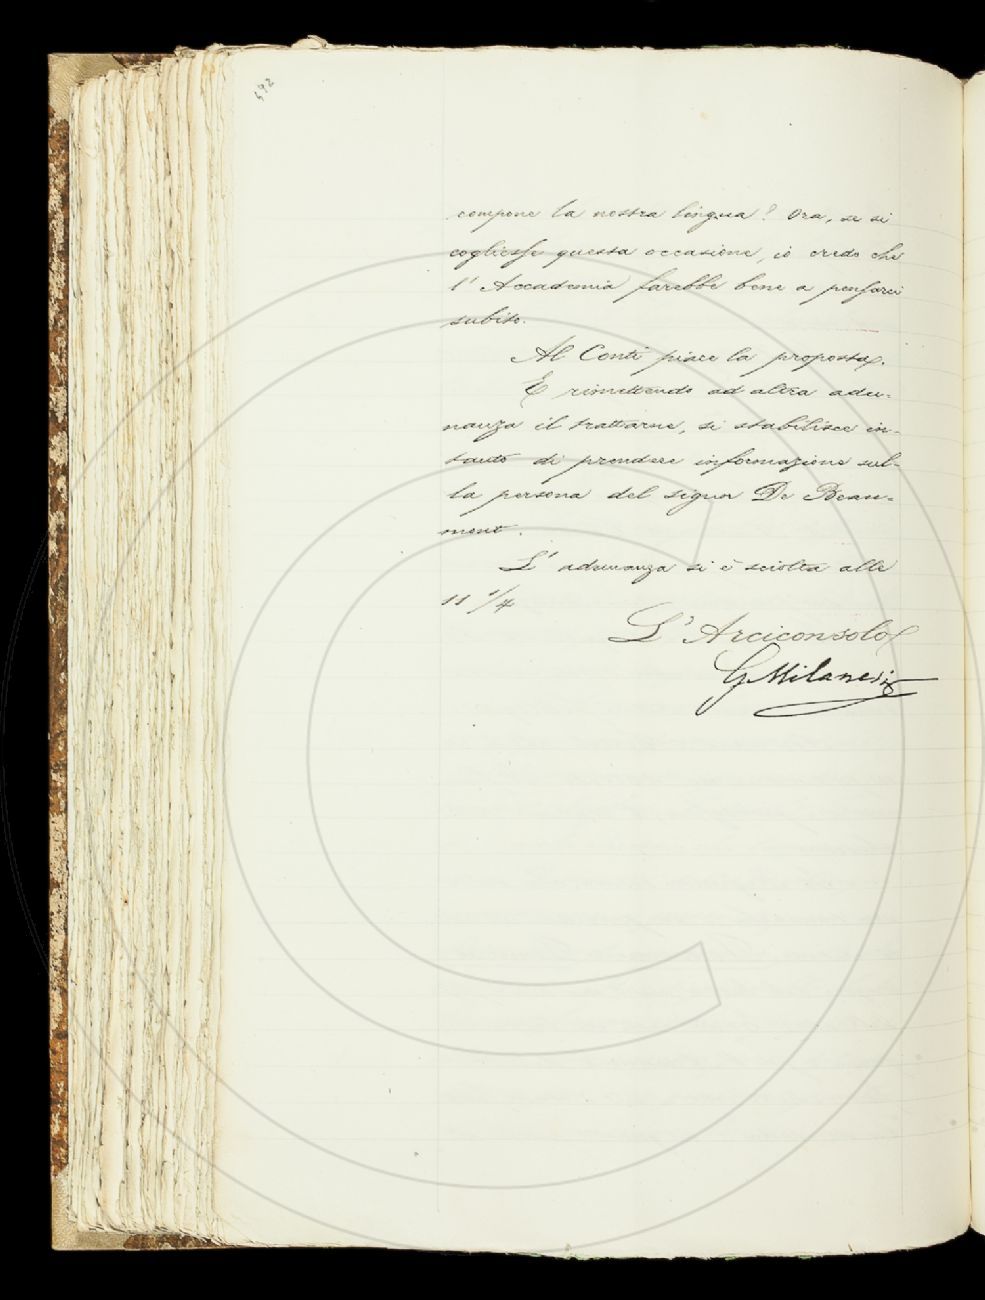 492
compone la nostra lingua? Ora, se si
cogliesse questa occasione, io credo che
l'Accademia farebbe bene a pensarci
subito.
Al Conti piace la proposta.
E rimettendo ad altra adu-
nanza il trattarne, si stabilisce in-
tanto di prendere informazione sul-
la persona del signor De Beau-
mont.
L'adunanza si è sciolta alle
11 1/4
L'Arciconsolo
G Milanesi